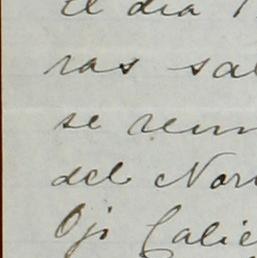 El dia 1
ras sal
se reun
del Nor
Ojo Calie